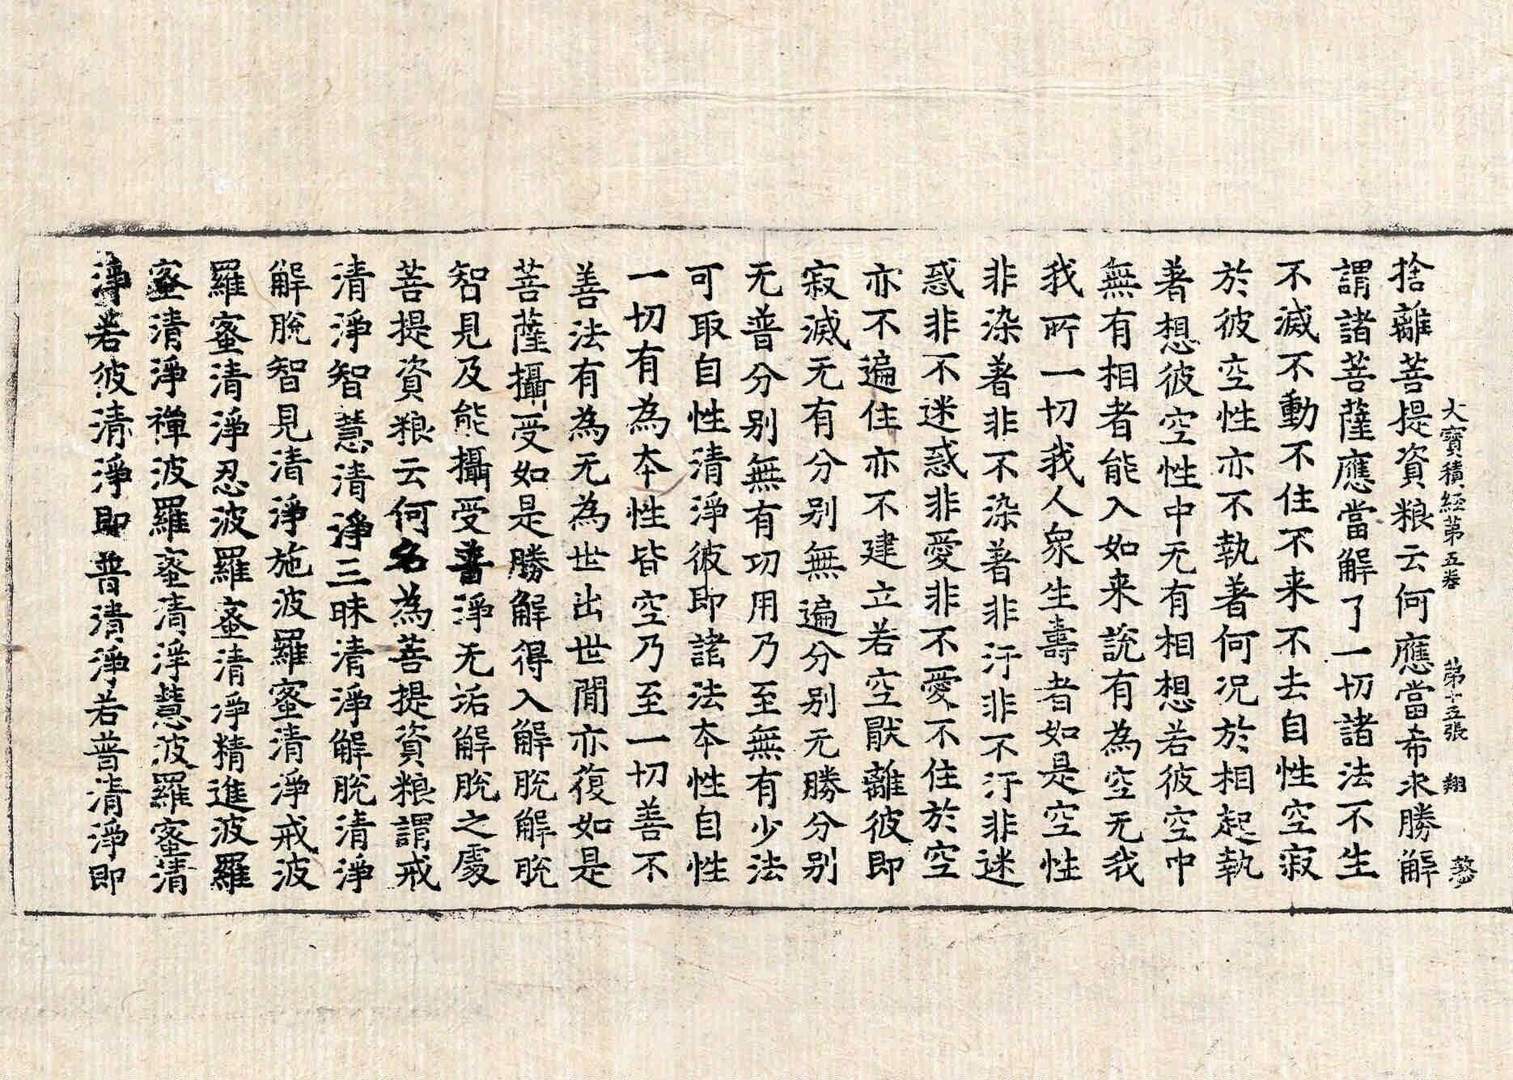 大寶積經第五卷 第十五張 翔
捨離菩提資粮云何應當希求勝解
謂諸菩薩應當解了一切諸法不生
不滅不動不住不来不去自性空寂
於彼空性亦不執著何況於相起執
著想彼空性中无有相想若彼空中
無有相者能入如来說有為空无我
我所一切我人衆生壽者如是空性
非染著非不染著非汙非不汙非迷
惑非不迷惑非愛非不愛不住於空
亦不遍住亦不建立若空猒離彼即
寂滅无有分別無遍分別无勝分別
无普分別無有功用乃至無有少法
可取自性清淨彼即諸法本性自性
一切有為本性皆空乃至一切善不
善法有為无為世出世閒亦復如是
菩薩攝受如是勝解得入解脫解脫
智見及能攝受普淨无垢解脫之處
菩提資粮云何名為菩提資粮謂戒
清淨智慧清淨三昧清淨解脫清淨
解脫智見清淨施波羅蜜清淨戒波
羅蜜清淨忍波羅蜜清淨精進波羅
蜜清淨禪波羅蜜清淨慧波羅蜜清
淨若彼清淨即普清淨若普清淨即